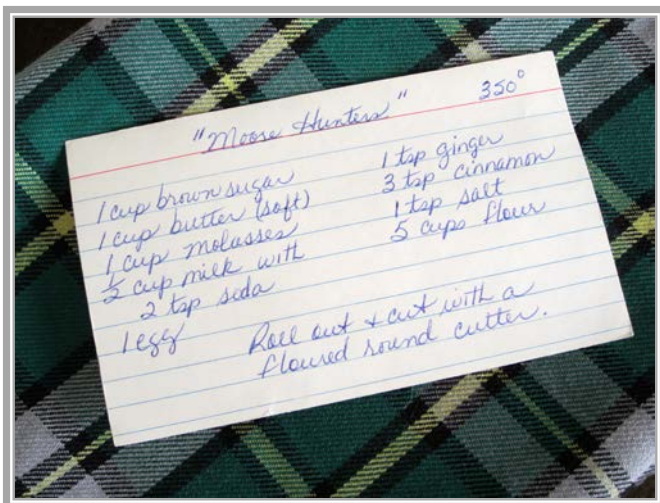 "Moose Hunters" 350°
1 cup brown sugar
1 cup butter (soft)
1 cup molasses
½ cup milk with
2 tsp soda
1 egg
1 tsp ginger
3 tsp cinnamon
1 tsp salt
5 cups flour
Roll out + cut with a
floured round cutter.